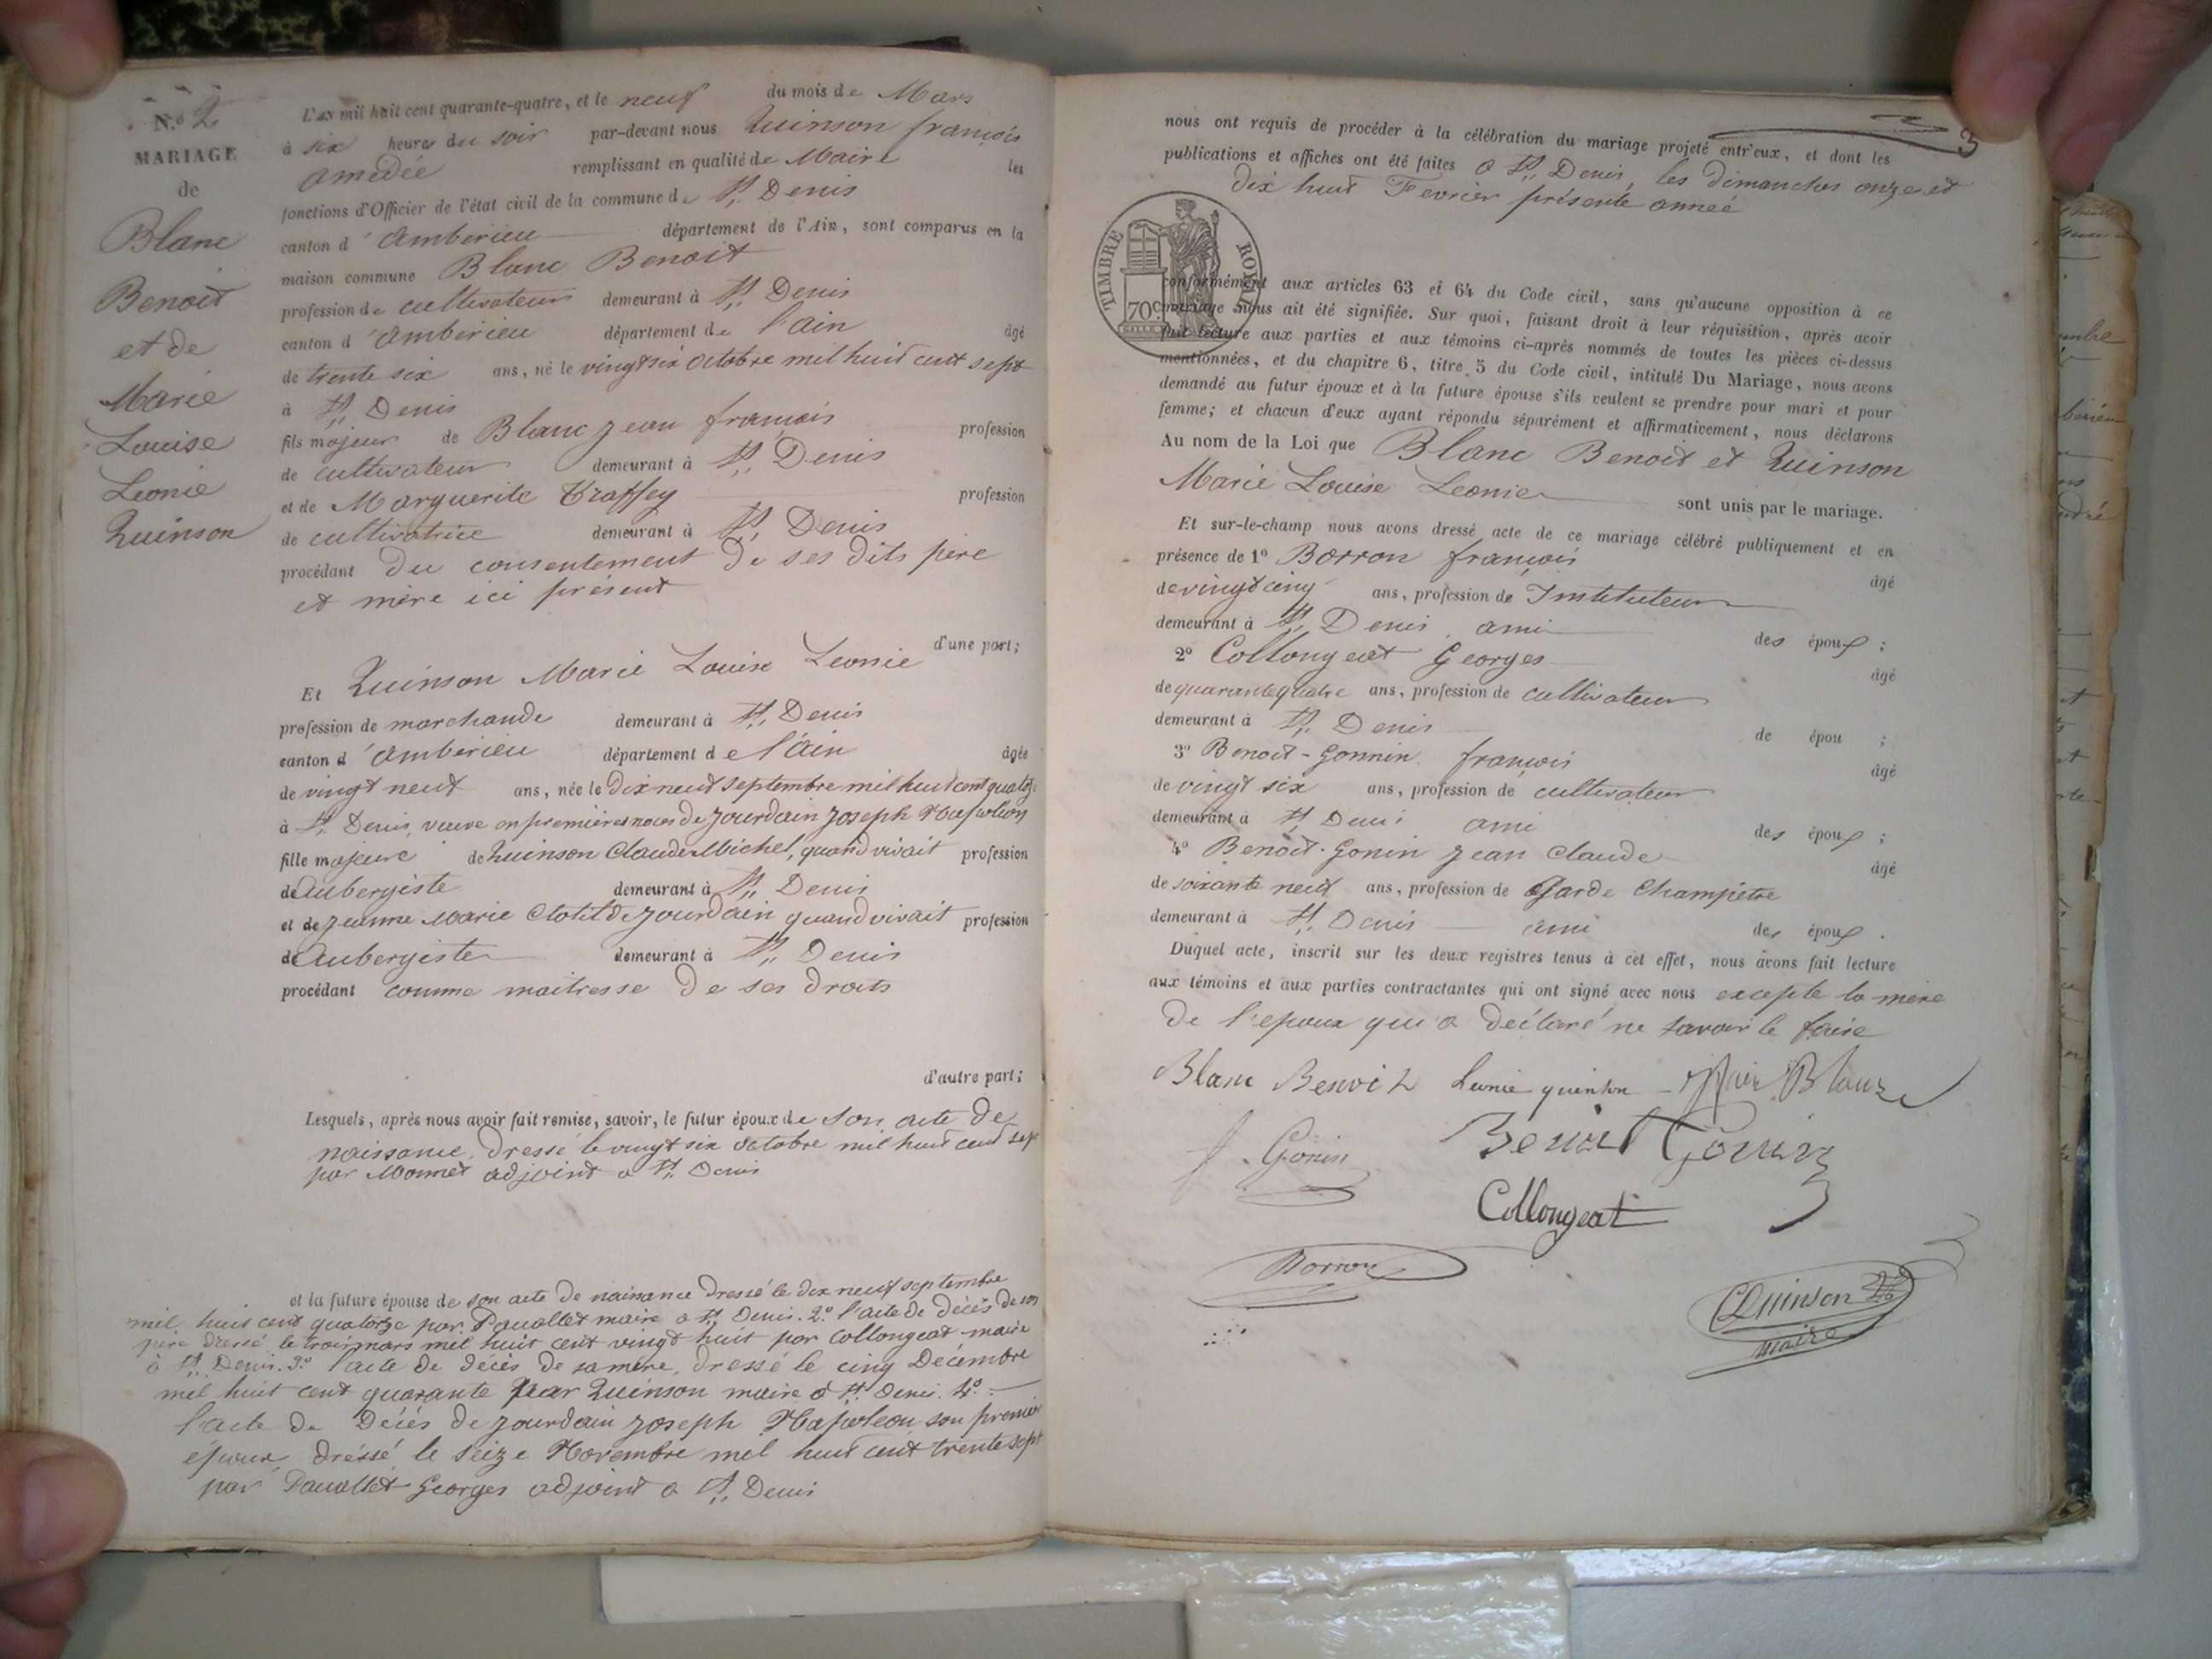 N.o 2
MARIAGE
de
Blanc
Benoit
et de
Marie
Louise
Leonie
Quinson
L'an mil huit cent quarante-quatre, et le neuf du mois de Mars
à six heures du soir par-devant nous Quinson françois
amedée remplissant en qualité de Maire les
fonctions d'Officier de l'état civil de la commune de St. Denis
canton d'amberieu département de l'Ain, sont comparus en la
maison commune Blanc Benoit
profession de cultivateur demeurant à St. Denis
canton d'amberieu département de l'ain âgé
de trente six ans, né le vingt six octobre mil huit cent sept
à St. Denis
fils majeur de Blanc jean françois profession
de cultivateur demeurant à St. Denis
et de Marguerite Traffey profession
de cultivatrice demeurant à St. Denis
procédant du consentement de ses dits père
et mère ici présent
d'une part;
Et Quinson Marie Louise Leonie
profession de marchande demeurant à St. Denis
canton d'amberieu département de l'ain âgée
de vingt neuf ans, née le dix neuf septembre mil huit cent quatorze
à St. Denis, veuve en premières noces de jourdain joseph Napoléon
fille majeure de Quinson Claude Michel, quand vivait profession
de aubergiste demeurant à St. Denis
et de jeanne Marie Clotilde jourdain quand vivait profession
de aubergiste demeurant à St. Denis
procédant comme maitresse de ses droits
d'autre part;
Lesquels, après nous avoir fait remise, savoir, le futur époux de son acte de
naissance, dressé le vingt six octobre mil huit cent sept
par Monnet adjoint a St. Denis
et la future épouse de son acte de naissance dressé le dix neuf septembre
mil huit cent quatorze par Pauollet maire a St. Denis. 2.o l'acte de décès de son
père dressé le trois mars mil huit cent vingt huit par Collongeat maire
à St. Denis. 3.o l'acte de décès de sa mère, dressé le cinq Décembre
mil huit cent quarante par Quinson maire à St. Denis. 4.o
l'acte de Décès de jourdain joseph Napoleon son premier
epoux, dréssé le seize Novembre mil huit cent trente sept
par Pauollet Georges adjoint a St. Denis
3
nous ont requis de procéder à la célébration du mariage projeté entr'eux, et dont les
publications et affiches ont été faites a St. Denis, les dimanches onze et
dix huit Fevrier présente année
TIMBRE ROYAL
70 c.
conformément aux articles 63 et 64 du Code civil, sans qu'aucune opposition à ce
mariage nous ait été signifiée. Sur quoi, faisant droit à leur réquisition, après avoir
fait lecture aux parties et aux témoins ci-après nommés de toutes les pièces ci-dessus
mentionnées, et du chapitre 6, titre 5 du Code civil, intitulé Du Mariage, nous avons
demandé au futur époux et à la future épouse s'ils veulent se prendre pour mari et pour
femme; et chacun d'eux ayant répondu séparément et affirmativement, nous déclarons
Au nom de la Loi que Blanc Benoit et Quinson
Marie Louise Leonie sont unis par le mariage.
Et sur-le-champ nous avons dressé acte de ce mariage célébré publiquement et en
présence de 1o Borron françois âgé
de vingt cinq ans, profession de Instituteur
demeurant à St. Denis, ami des époux;
2o Collongeat Georges âgé
de quarante quatre ans, profession de cultivateur
demeurant à St. Denis de épou ;
3o Benoit-Gonnin françois âgé
de vingt six ans, profession de cultivateur
demeurant à St. Denis ami des époux;
4o Benoit-Gonin jean Claude âgé
de soixante neuf ans, profession de Garde Champêtre
demeurant à St. Denis ami des époux.
Duquel acte, inscrit sur les deux registres tenus à cet effet, nous avons fait lecture
aux témoins et aux parties contractantes qui ont signé avec nous excepté la mère
de l'epoux qui a déclaré ne savoir le faire
Blanc Benoit Leonie quinson Blanc
f. Gonin Benoit Gonin
Collongeat
Borron
Quinson
maire